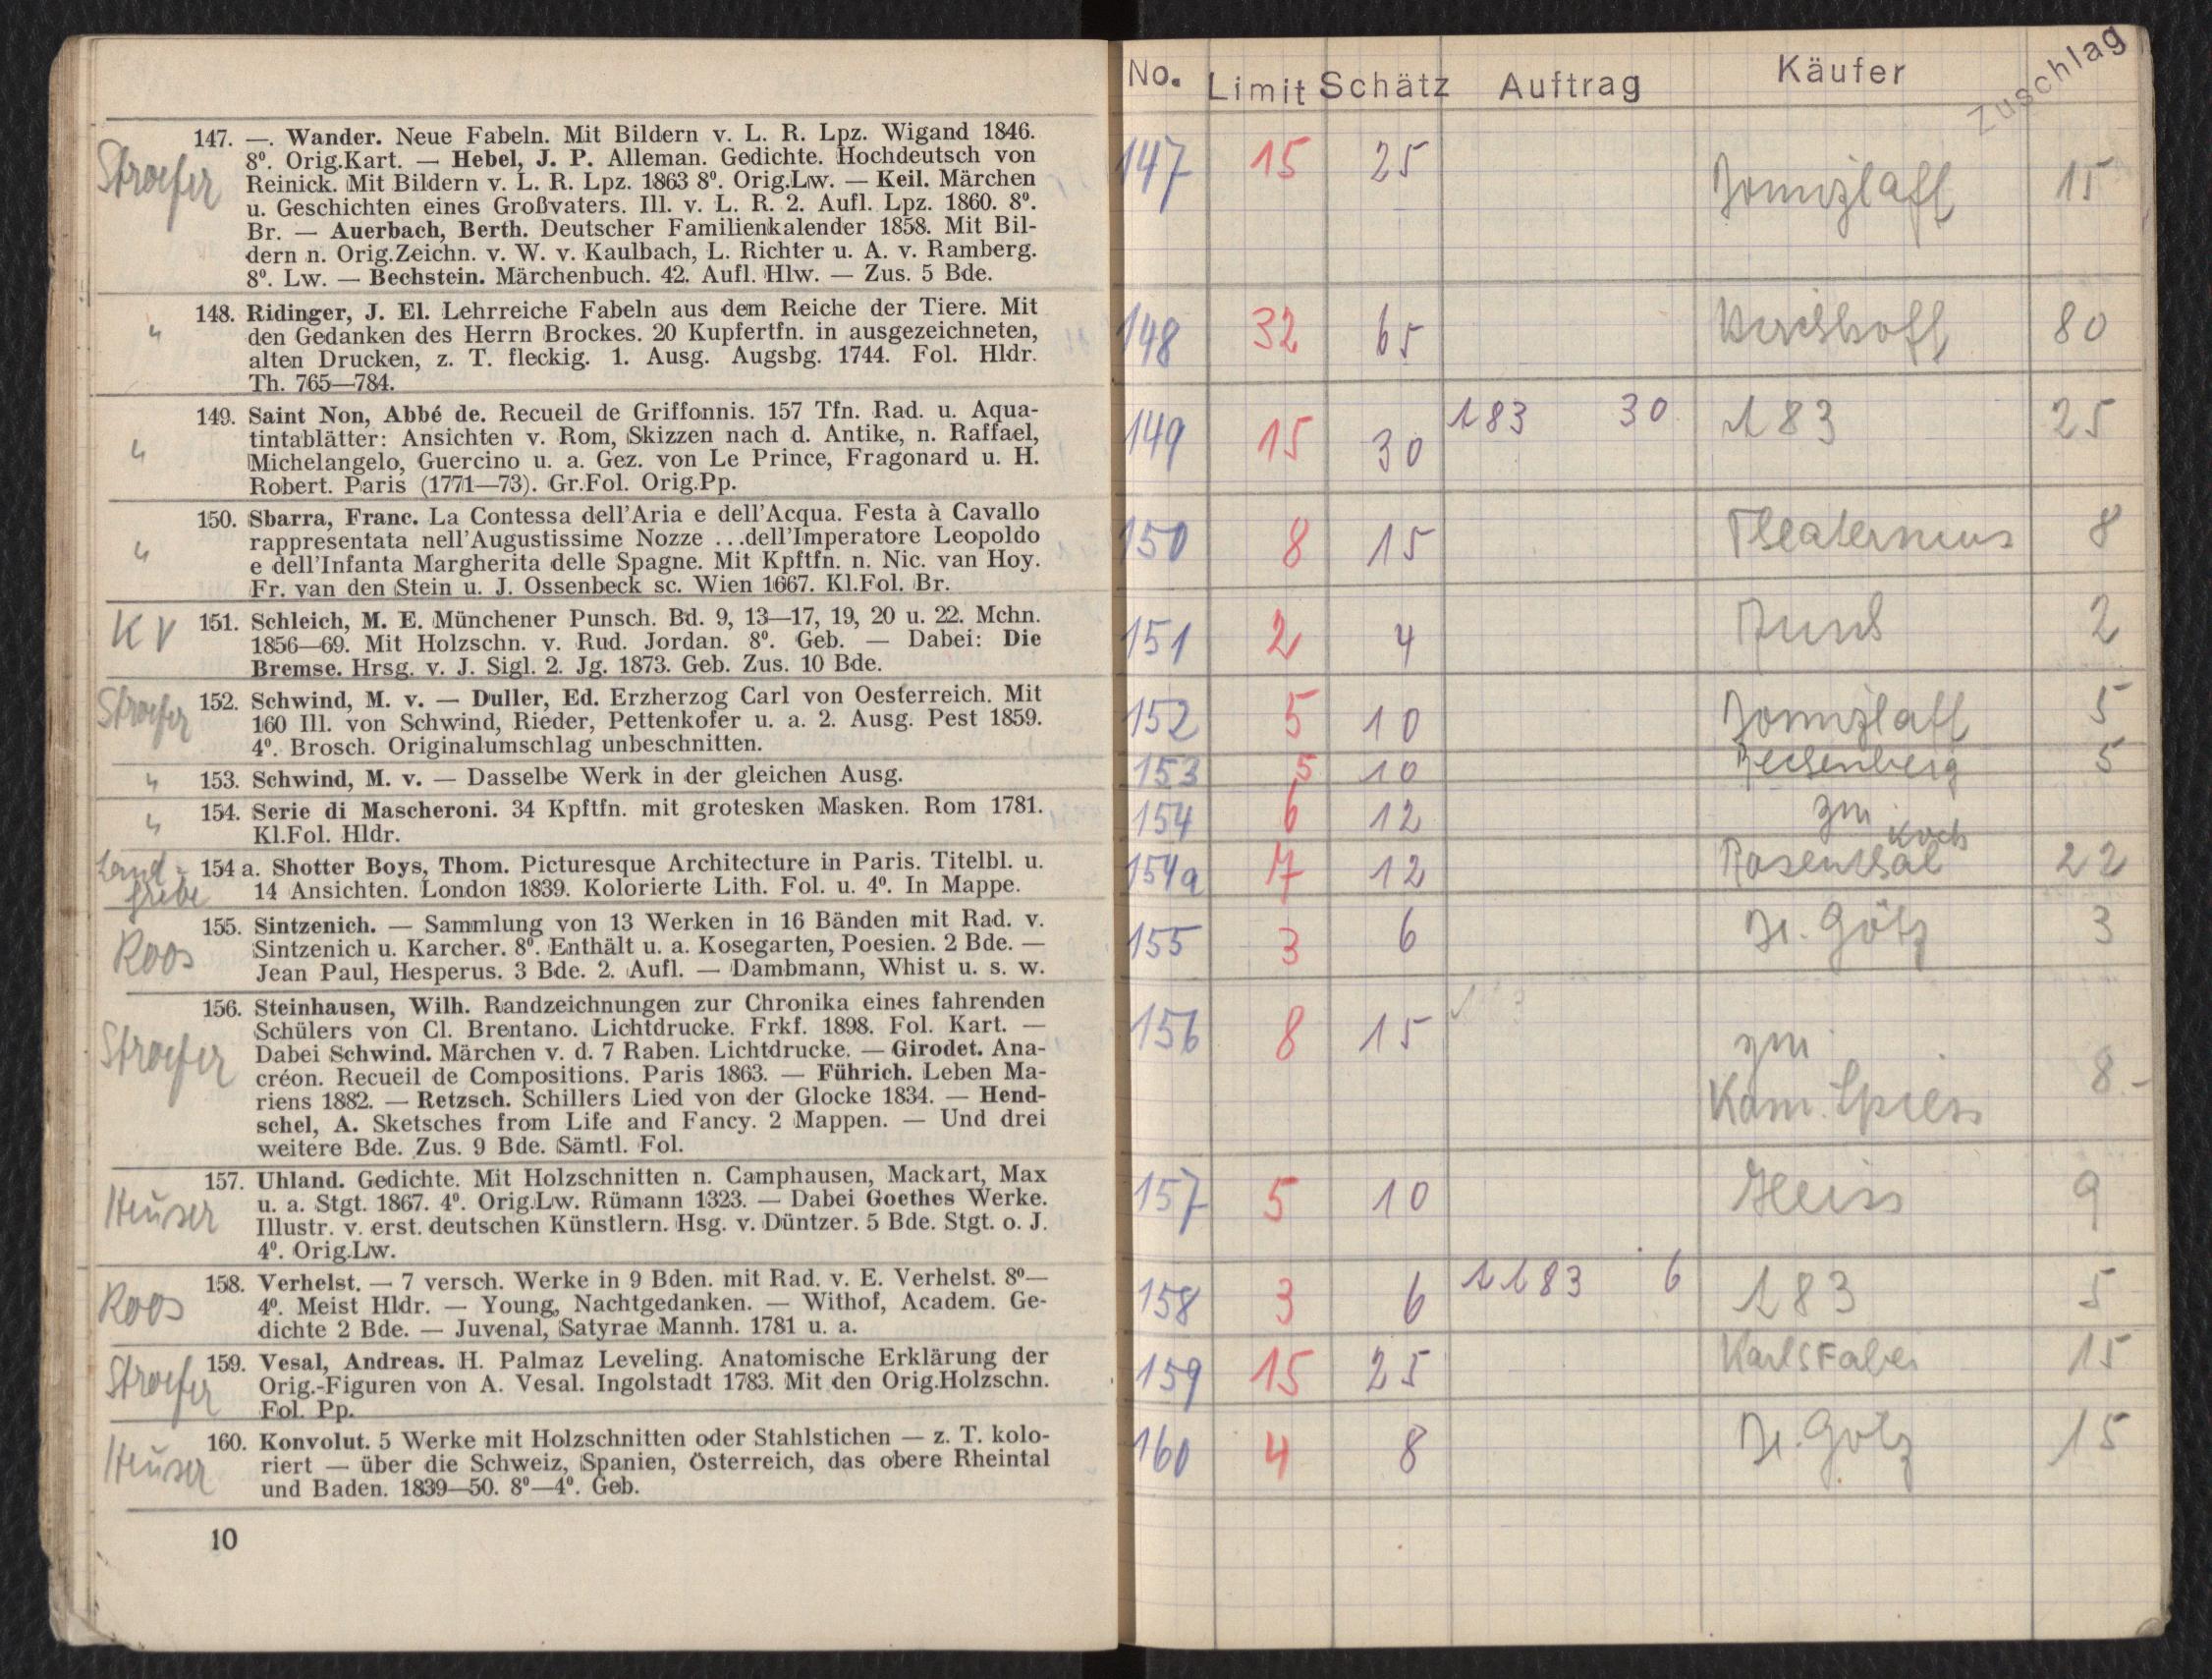 Stroefer
147. —. Wander. Neue Fabeln. Mit Bildern v. L. R. Lpz. Wigand 1846.
8⁰. Orig.Kart. — Hebel, J. P. Alleman. Gedichte. Hochdeutsch von
Reinick. Mit Bildern v. L. R. Lpz. 1863 8⁰. Orig.Lw. — Keil. Märchen
u. Geschichten eines Großvaters. Ill. v. L. R. 2. Aufl. Lpz. 1860. 8⁰.
Br. — Auerbach, Berth. Deutscher Familienkalender 1858. Mit Bil-
dern n. Orig.Zeichn. v. W. v. Kaulbach, L. Richter u. A. v. Ramberg.
8⁰. Lw. — Bechstein. Märchenbuch. 42. Aufl. Hlw. — Zus. 5 Bde.
"
148. Ridinger, J. El. Lehrreiche Fabeln aus dem Reiche der Tiere. Mit
den Gedanken des Herrn Brockes. 20 Kupfertfn. in ausgezeichneten,
alten Drucken, z. T. fleckig. 1. Ausg. Augsbg. 1744. Fol. Hldr.
Th. 765—784.
"
149. Saint Non, Abbé de. Recueil de Griffonnis. 157 Tfn. Rad. u. Aqua-
tintablätter: Ansichten v. Rom, Skizzen nach d. Antike, n. Raffael,
Michelangelo, Guercino u. a. Gez. von Le Prince, Fragonard u. H.
Robert. Paris (1771—73). Gr.Fol. Orig.Pp.
"
150. Sbarra, Franc. La Contessa dell'Aria e dell'Acqua. Festa à Cavallo
rappresentata nell'Augustissime Nozze ...dell'Imperatore Leopoldo
e dell'Infanta Margherita delle Spagne. Mit Kpftfn. n. Nic. van Hoy.
Fr. van den Stein u. J. Ossenbeck sc. Wien 1667. Kl.Fol. Br.
K V
151. Schleich, M. E. Münchener Punsch. Bd. 9, 13—17, 19, 20 u. 22. Mchn.
1856—69. Mit Holzschn. v. Rud. Jordan. 8⁰. Geb. — Dabei: Die
Bremse. Hrsg. v. J. Sigl. 2. Jg. 1873. Geb. Zus. 10 Bde.
Stroefer
152. Schwind, M. v. — Duller, Ed. Erzherzog Carl von Oesterreich. Mit
160 Ill. von Schwind, Rieder, Pettenkofer u. a. 2. Ausg. Pest 1859.
4⁰. Brosch. Originalumschlag unbeschnitten.
"
153. Schwind, M. v. — Dasselbe Werk in der gleichen Ausg.
"
154. Serie di Mascheroni. 34 Kpftfn. mit grotesken Masken. Rom 1781.
Kl.Fol. Hldr.
Land-
grebe
154 a. Shotter Boys, Thom. Picturesque Architecture in Paris. Titelbl. u.
14 Ansichten. London 1839. Kolorierte Lith. Fol. u. 4⁰. In Mappe.
Roos
155. Sintzenich. — Sammlung von 13 Werken in 16 Bänden mit Rad. v.
Sintzenich u. Karcher. 8⁰. Enthält u. a. Kosegarten, Poesien. 2 Bde. —
Jean Paul, Hesperus. 3 Bde. 2. Aufl. — Dambmann, Whist u. s. w.
Stroefer
156. Steinhausen, Wilh. Randzeichnungen zur Chronika eines fahrenden
Schülers von Cl. Brentano. Lichtdrucke. Frkf. 1898. Fol. Kart. —
Dabei Schwind. Märchen v. d. 7 Raben. Lichtdrucke. — Girodet. Ana-
créon. Recueil de Compositions. Paris 1863. — Führich. Leben Ma-
riens 1882. — Retzsch. Schillers Lied von der Glocke 1834. — Hend-
schel, A. Sketsches from Life and Fancy. 2 Mappen. — Und drei
weitere Bde. Zus. 9 Bde. Sämtl. Fol.
Heuser
157. Uhland. Gedichte. Mit Holzschnitten n. Camphausen, Mackart, Max
u. a. Stgt. 1867. 4⁰. Orig.Lw. Rümann 1323. — Dabei Goethes Werke.
Illustr. v. erst. deutschen Künstlern. Hsg. v. Düntzer. 5 Bde. Stgt. o. J.
4⁰. Orig.Lw.
Roos
158. Verhelst. — 7 versch. Werke in 9 Bden. mit Rad. v. E. Verhelst. 8⁰—
4⁰. Meist Hldr. — Young, Nachtgedanken. — Withof, Academ. Ge-
dichte 2 Bde. — Juvenal, Satyrae Mannh. 1781 u. a.
Stroefer
159. Vesal, Andreas. H. Palmaz Leveling. Anatomische Erklärung der
Orig.-Figuren von A. Vesal. Ingolstadt 1783. Mit den Orig.Holzschn.
Fol. Pp.
Heuser
160. Konvolut. 5 Werke mit Holzschnitten oder Stahlstichen — z. T. kolo-
riert — über die Schweiz, Spanien, Österreich, das obere Rheintal
und Baden. 1839—50. 8⁰—4⁰. Geb.
10
No. Limit Schätz Auftrag Käufer Zuschlag
147 15 25 15
148 32 65 Kirchhoff 80
149 15 30 183 30 183 25
150 8 15 Theatermus 8
151 2 4 2
152 5 10 5
153 5 10 5
154 6 12 zur.
154a 7 12 Rosenthal Koch 22
155 3 6 Dr. Götz 3
156 8 15 zur
Kom. Spiess 8.-
157 5 10 Heiss 9
158 3 6 1183 6 183 5
159 15 25 Karl & Faber 15
160 4 8 Dr. Götz 15